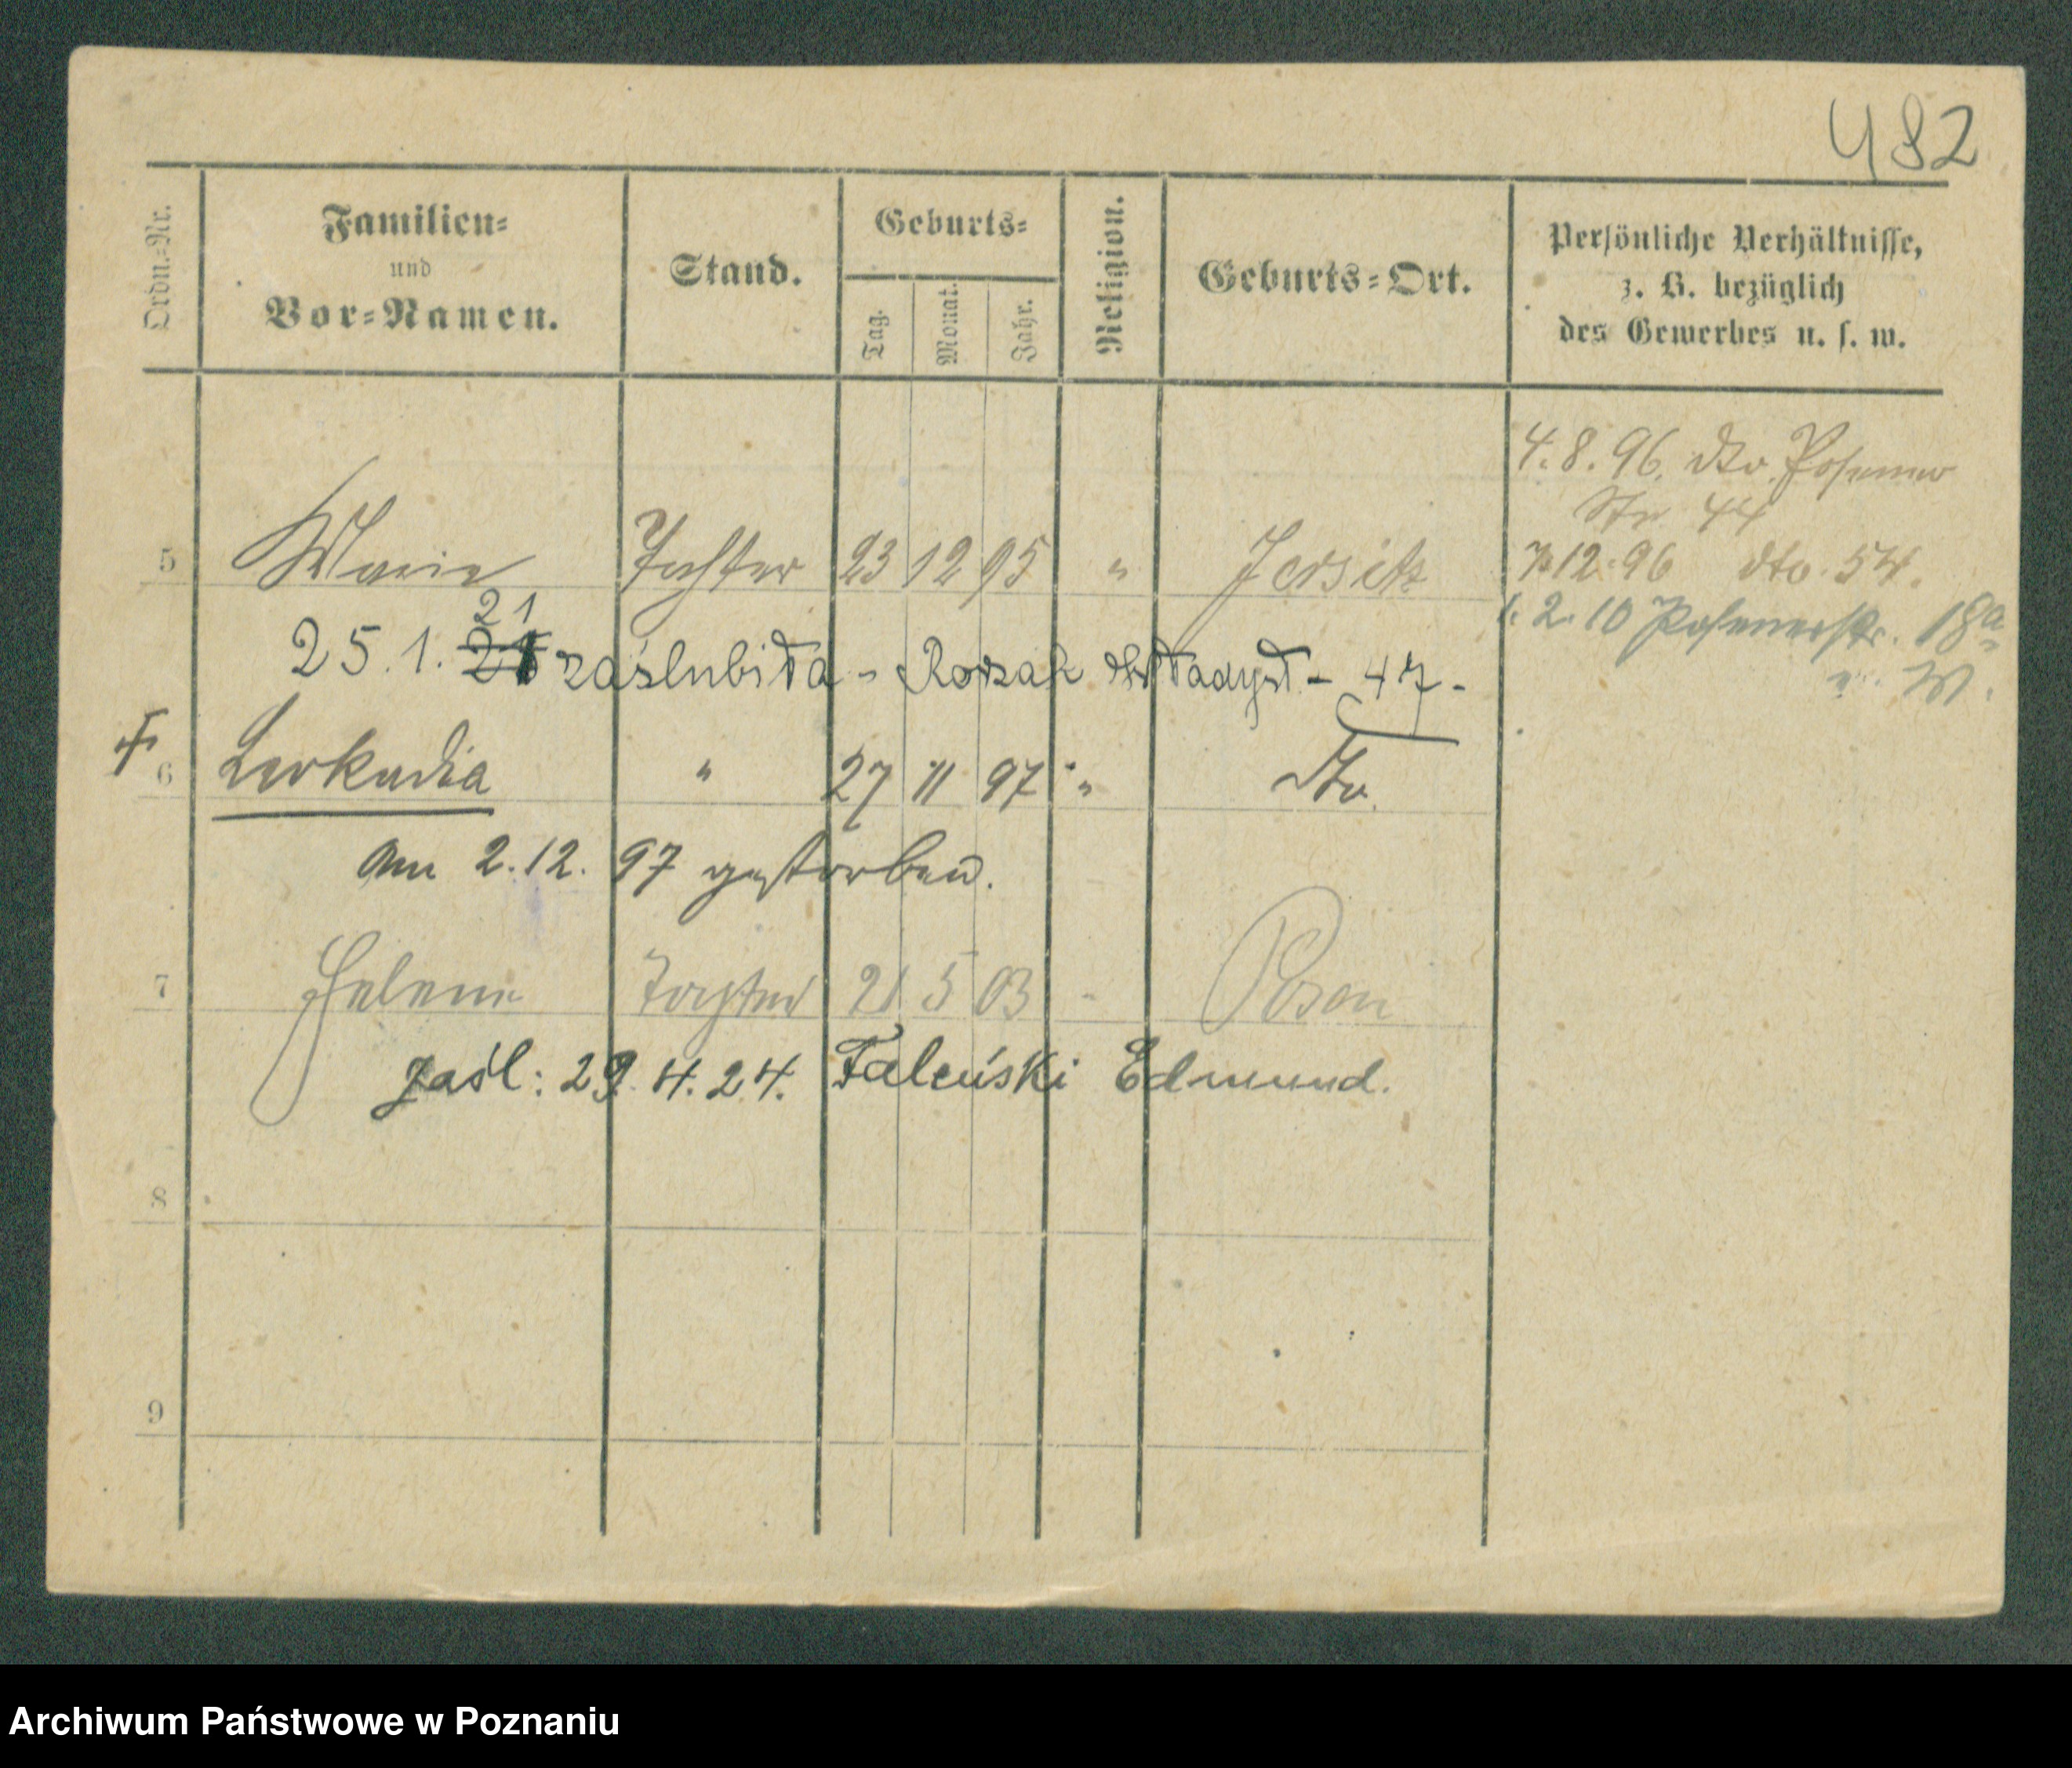 482
Ordn.-Nr.
Familien-
und
Vor-Namen.
Stand.
Geburts-
Tag.
Monat.
Jahr.
Religion.
Geburts-Ort.
Persönliche Verhältnisse,
z. B. bezüglich
des Gewerbes u. s. w.
4. 8. 96. dto. Posener
Str 44
5 Marie Tochter 23 12 95 " Jersitz
12. 96 dto. 54.
2. 10 Posenerstr. 18a
W.
25. 1. 21 21 zaślubiła - Rorzak Władysł. - 47 -
6 Leokadia " 27 11 97 " dto.
am 2. 12. 97 gestorben.
7 Helene Tochter 21 5 03 " Posen
zaśl: 29. 4. 24. Faleński Edmund.
8
9
Archiwum Państwowe w Poznaniu